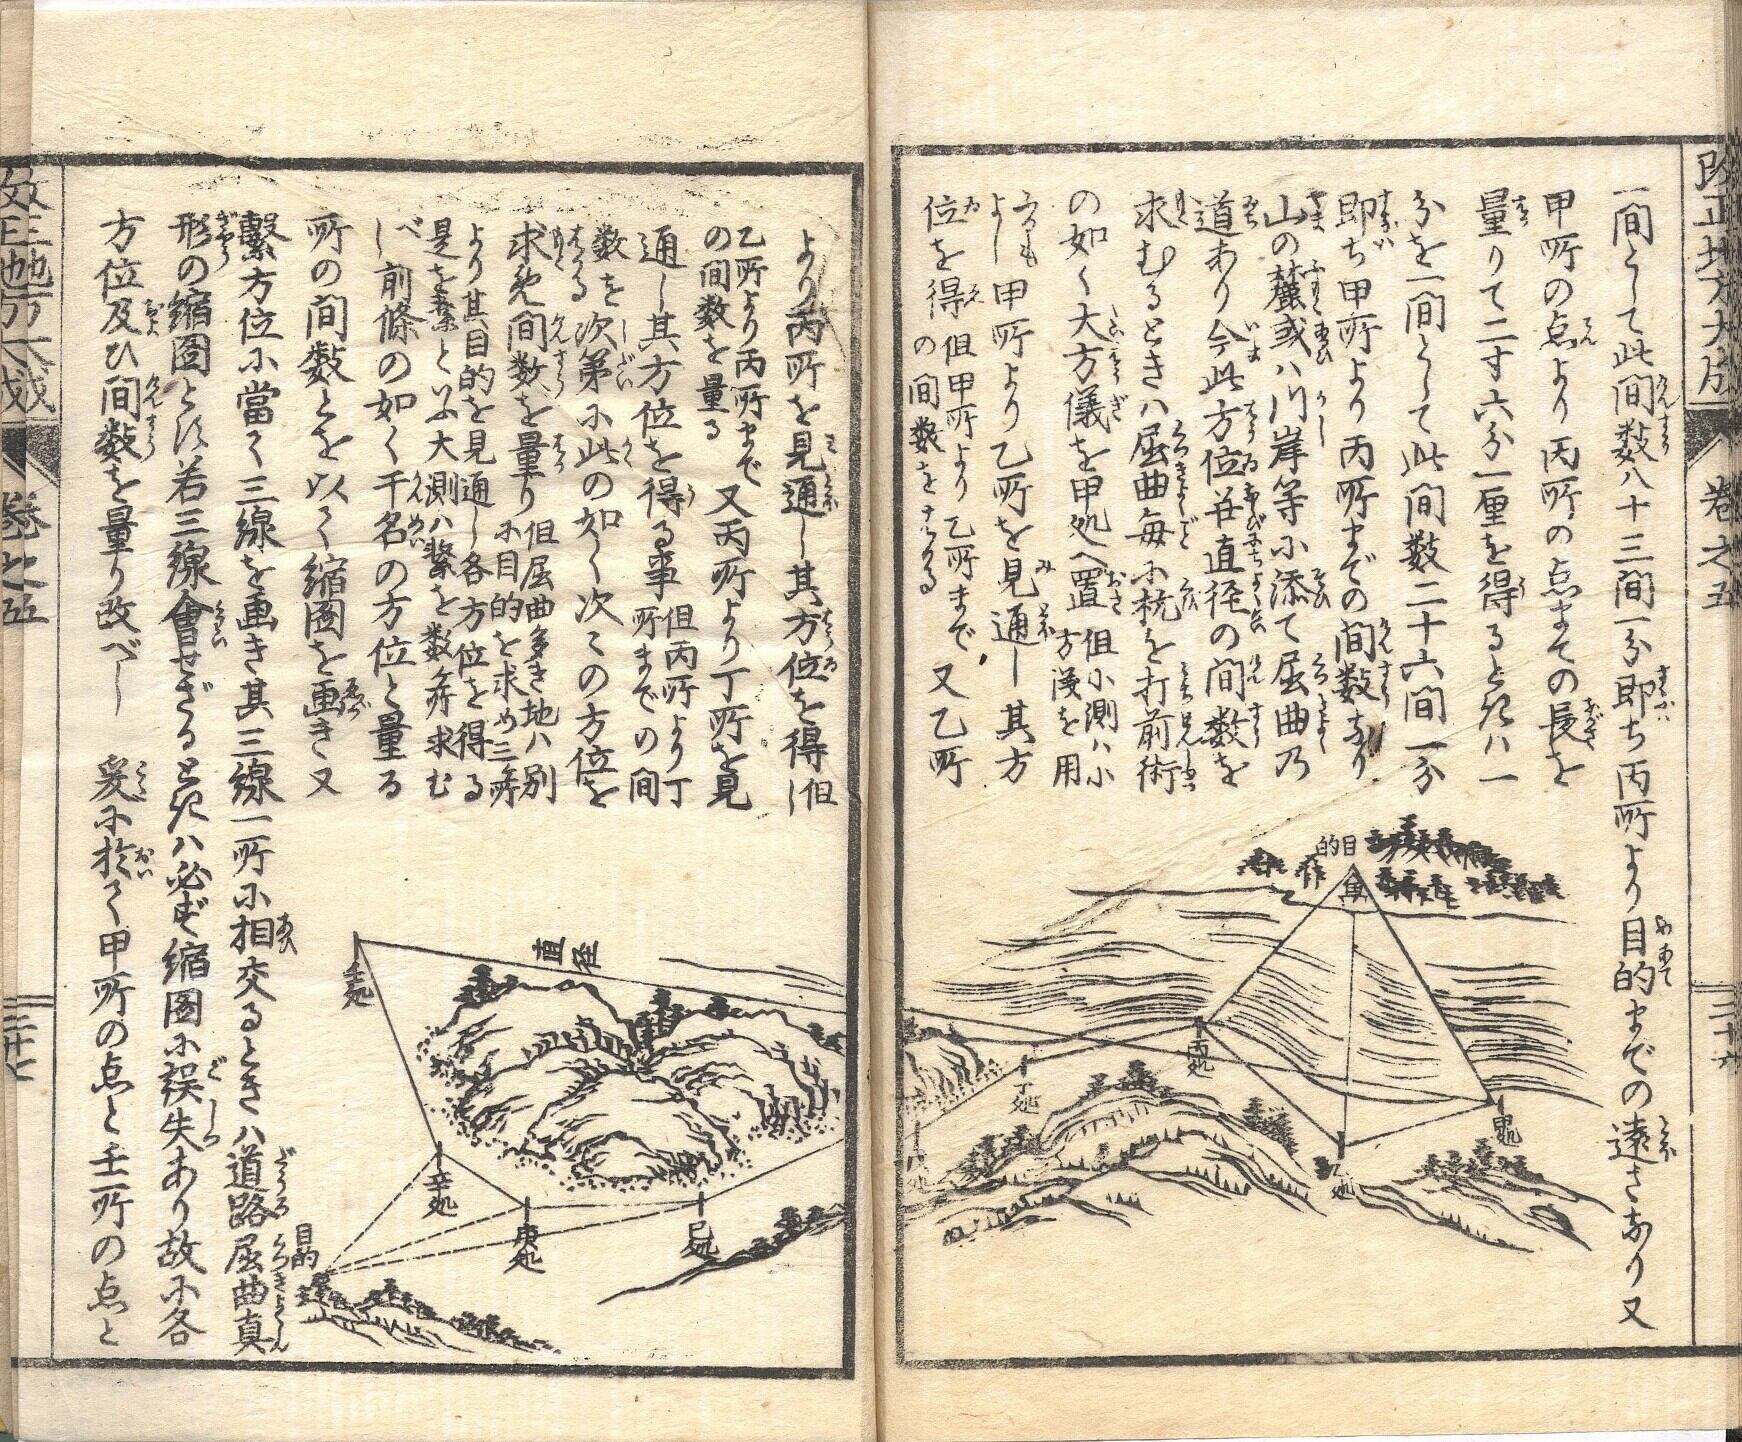 改正地方大成
巻之五
三十六
一間として此間数八十三間一分即ち丙所より目的までの遠さなり又
甲所の点より丙所の点までの長を
量りて二寸六分一厘を得るときハ一
分を一間として此間数二十六間一分
即ち甲所より丙所までの間数なり
山の麓或ハ川岸等に添て屈曲乃
道あり今此方位並直径の間数を
求むるときハ屈曲毎に杭を打前術
の如く大方儀を甲処へ置 但小測ハ小
方儀を用
ふるも
よし 甲所より乙所を見通し其方
位を得 但甲所より乙所まで
の間数をはかる 又乙所
目的
甲処
乙処
丙処
丁処
より丙所を見通し其方位を得 但し
乙所より丙所まで
の間数を量る 又丙所より丁所を見
通し其方位を得る事 但丙所より丁
所までの間
数を 次第に此の如く次々の方位を
はかる
求め間数を量り 但屈曲多き地ハ別
に目的を求め三所
より其目的を見通し各方位を得る
是を繋といふ大測ハ繋を数ヶ所求む
べし 前條の如く千名の方位と量る
所の間数とを以て縮図を画き又
繋方位に當て三線を画き其三線一所に相交るときハ道路屈曲真
形の縮図とす若三線會せざるときハ必ず縮図に誤失あり故に各
方位及ひ間数を量り改べし 爰に於て甲所の点と壬所の点と
直径
壬処
辛処
庚処
己処
目的
改正地方大成
巻之五
三十七